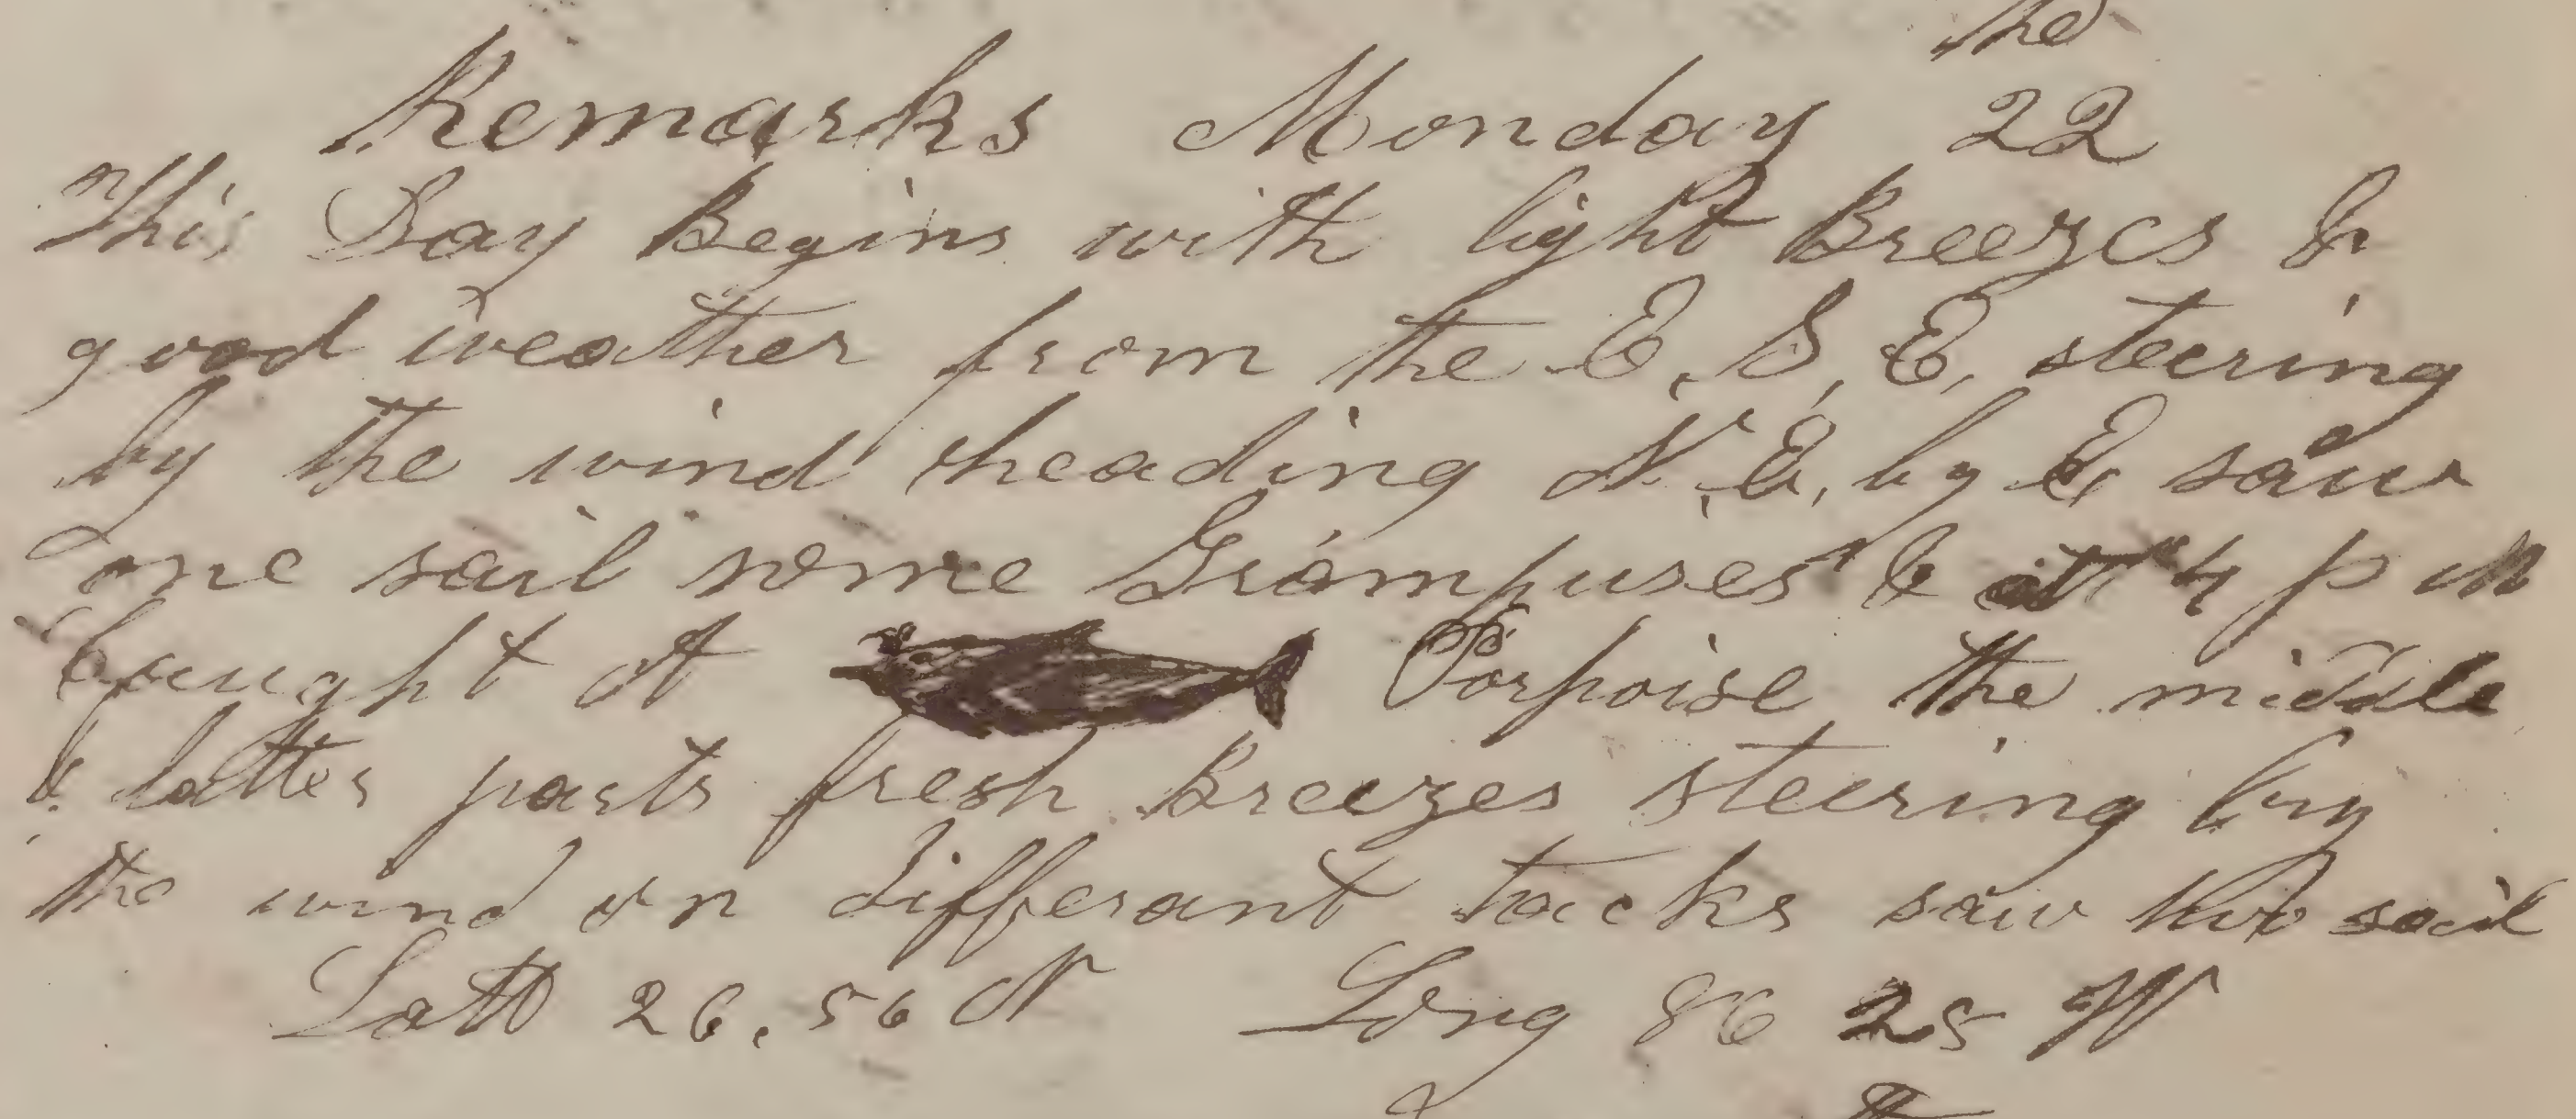 the
Remarks Monday 22
This Day Begins with light Breezes &
good weather from the E, S, E, steering
by the wind heading N, E, by E, saw
one sail some Grampuses & at 4 p m
Caught A Porpoise the middle
& latter parts fresh Breezes steering by
the wind on differant tacks saw two sail
Latt 26.56 N Long 86 25 W